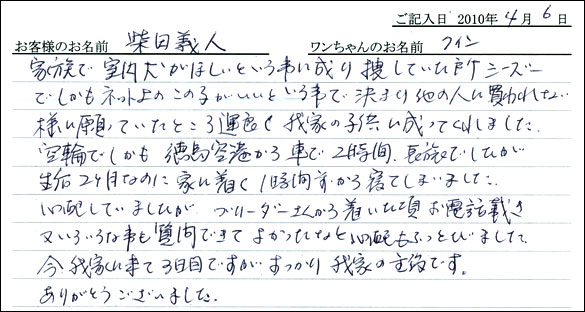 ご記入日 2010年4月6日
お客様のお名前 柴田義人 ワンちゃんのお名前 フイン
家族で室内犬がほしいという事に成り捜していた所シーズー
でしかもネット上のこの子がいいという事で決まり他の人に買われない
様に願っていたところ運良く我家の子供に成ってくれました。
空輸でしかも徳島空港から車で2時間、長旅でしたが
生后2ヶ月なのに家に着く1時間前から寝てしまいました。
心配していましたが ブリーダーさんから着いた頃お電話戴き
又いろいろな事も質問できてよかったなと心配もふっとびました。
今我家に来て3日目ですがすっかり我家の主役です。
ありがとうございました。